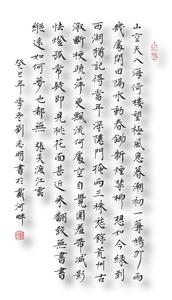 山空天入海倚樓望極風急暮潮初一簾鳩外雨
幾處閒田隔水動春鋤新煙禁柳想如今綠到
西湖猶記得當年深隱門掩兩三株愁余荒洲古
漵斷梗疏萍更飄流何處空自覺圍羞帶減影
怯燈孤常疑即見桃花面甚近來翻致無書書
縱遠如何夢也都無 張炎渡江雲
癸巳年季冬劉志明書於戴河畔